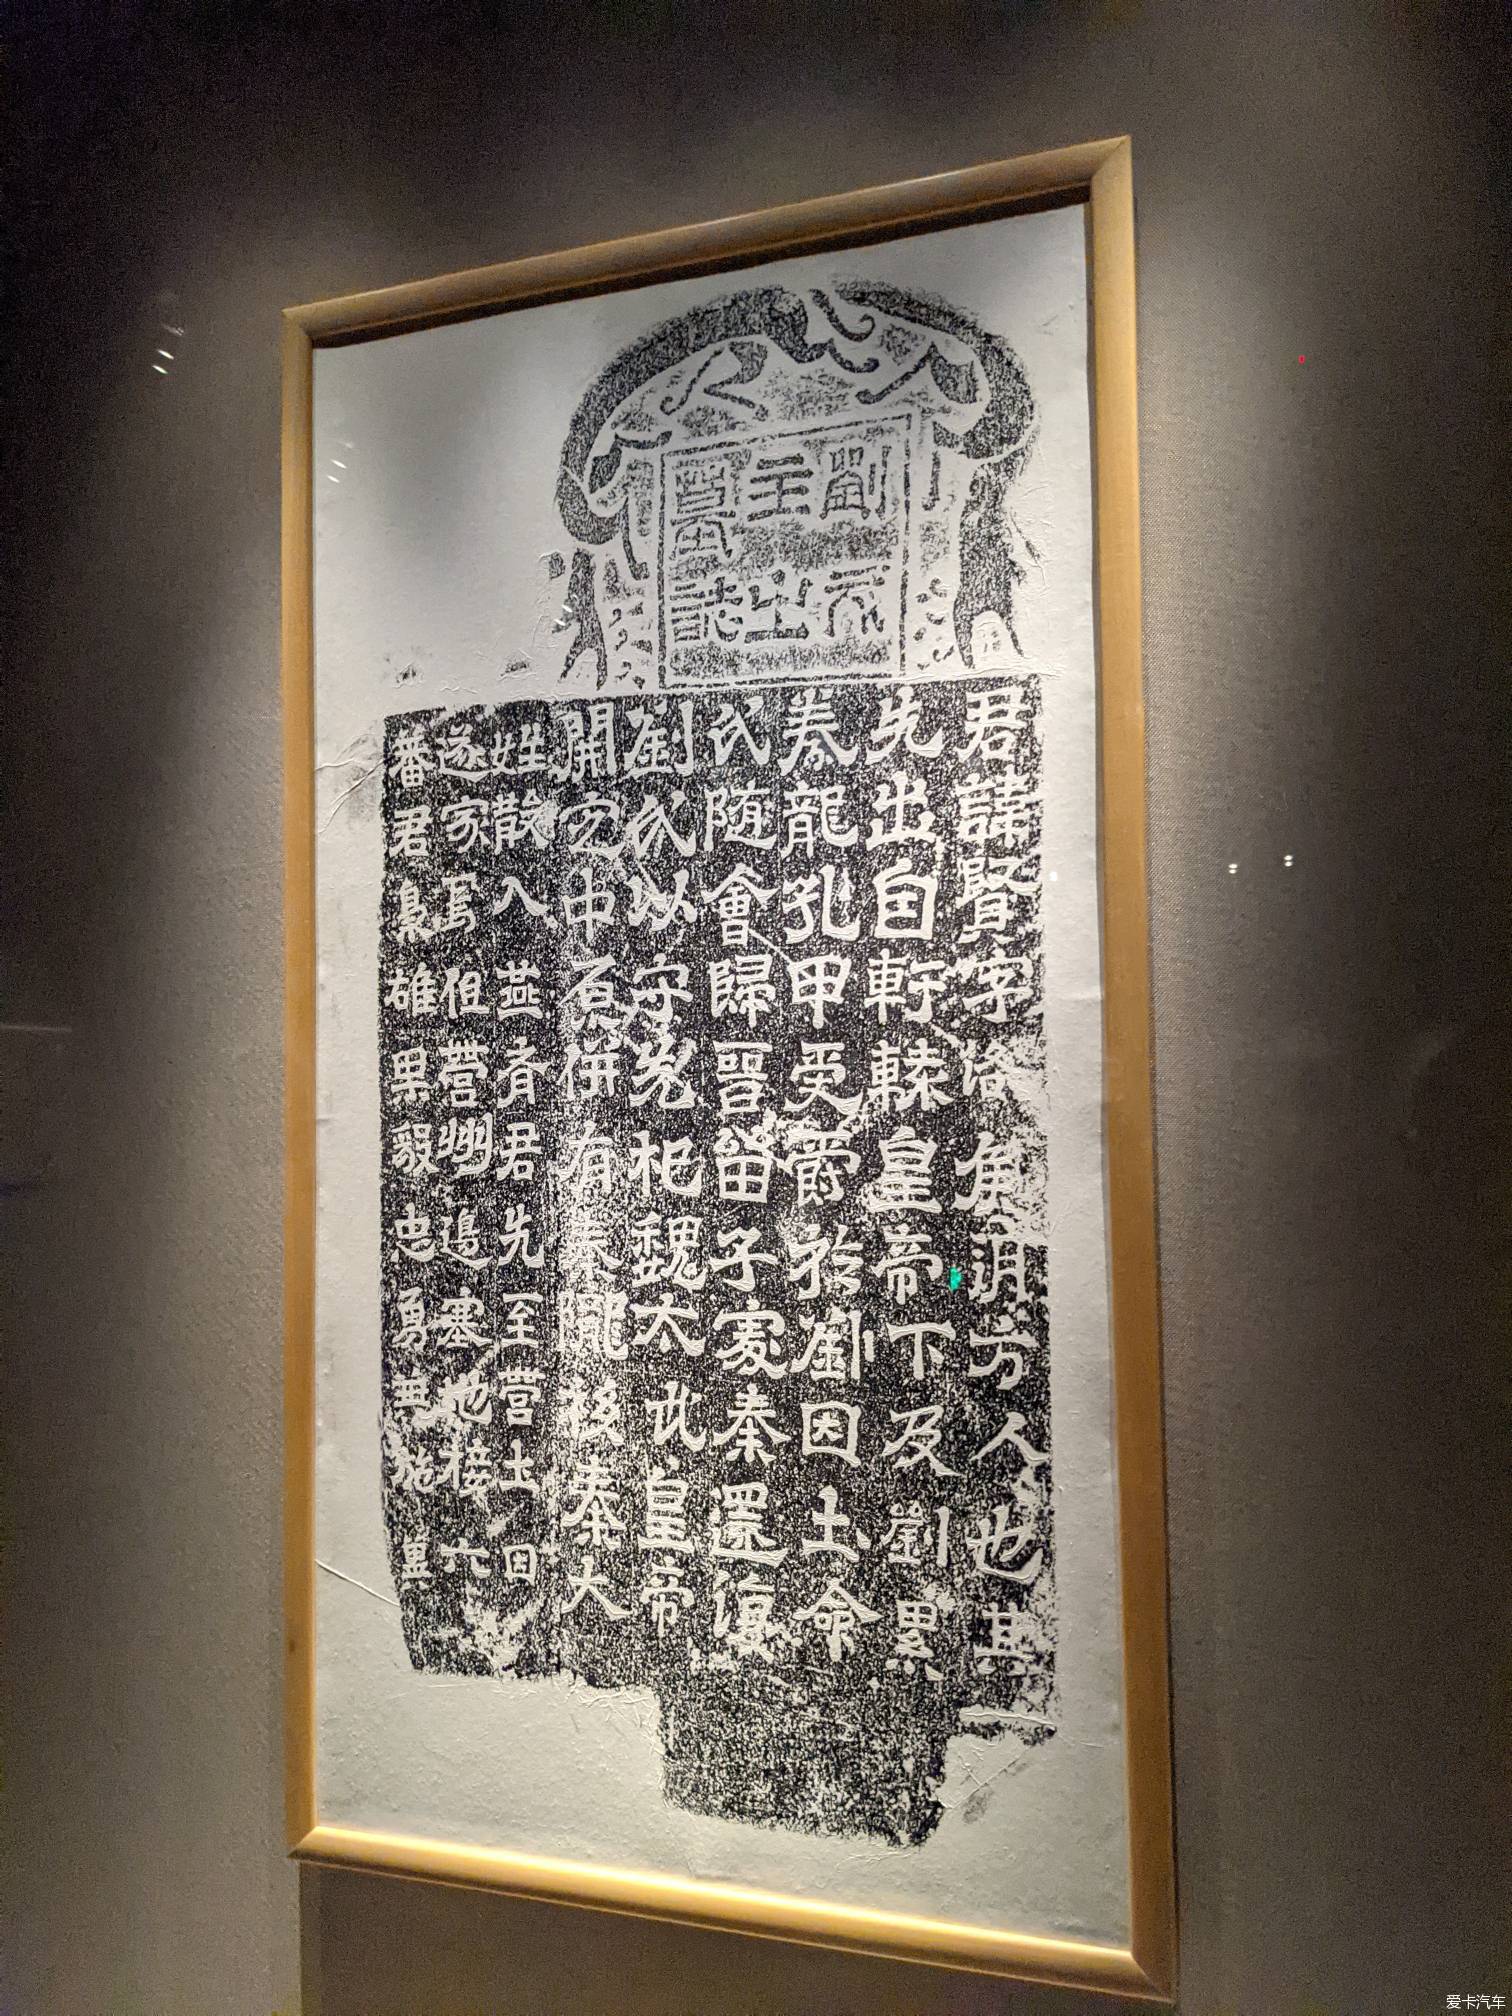 劉戍
主之
墓誌
君諱賢字洛侯朔方人也其
先出自軒轅皇帝下及劉累
豢龍孔甲受爵於劉因土命
氏随會歸晉留子處秦還復
劉氏以守堯祀魏太武皇帝
開定中原併有秦隴移秦大
姓散入燕齊君先至營土因
遂家焉但營州邊塞地接六
蕃君梟雄果毅忠勇兼施冀
爱卡汽车